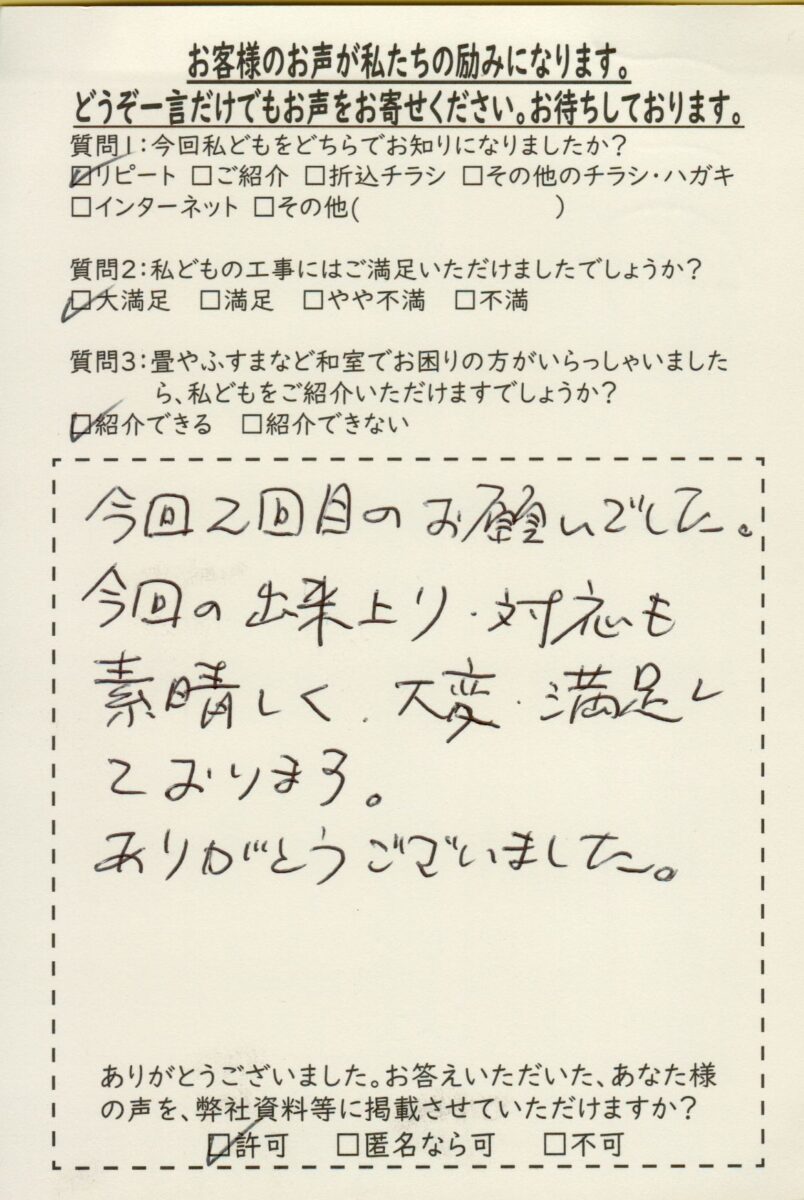 お客様のお声が私たちの励みになります。
どうぞ一言だけでもお声をお寄せください。お待ちしております。
質問1：今回私どもをどちらでお知りになりましたか？
☑リピート □ご紹介 □折込チラシ □その他のチラシ・ハガキ
□インターネット □その他(　　　　　　　　)
質問2：私どもの工事にはご満足いただけましたでしょうか？
☑大満足 □満足 □やや不満 □不満
質問3：畳やふすまなど和室でお困りの方がいらっしゃいました
ら、私どもをご紹介いただけますでしょうか？
☑紹介できる □紹介できない
今回2回目のお願いでした。
今回の出来上り・対応も
素晴しく、大変・満足し
ております。
ありがとうございました。
ありがとうございました。お答えいただいた、あなた様
の声を、弊社資料等に掲載させていただけますか？
☑許可 □匿名なら可 □不可